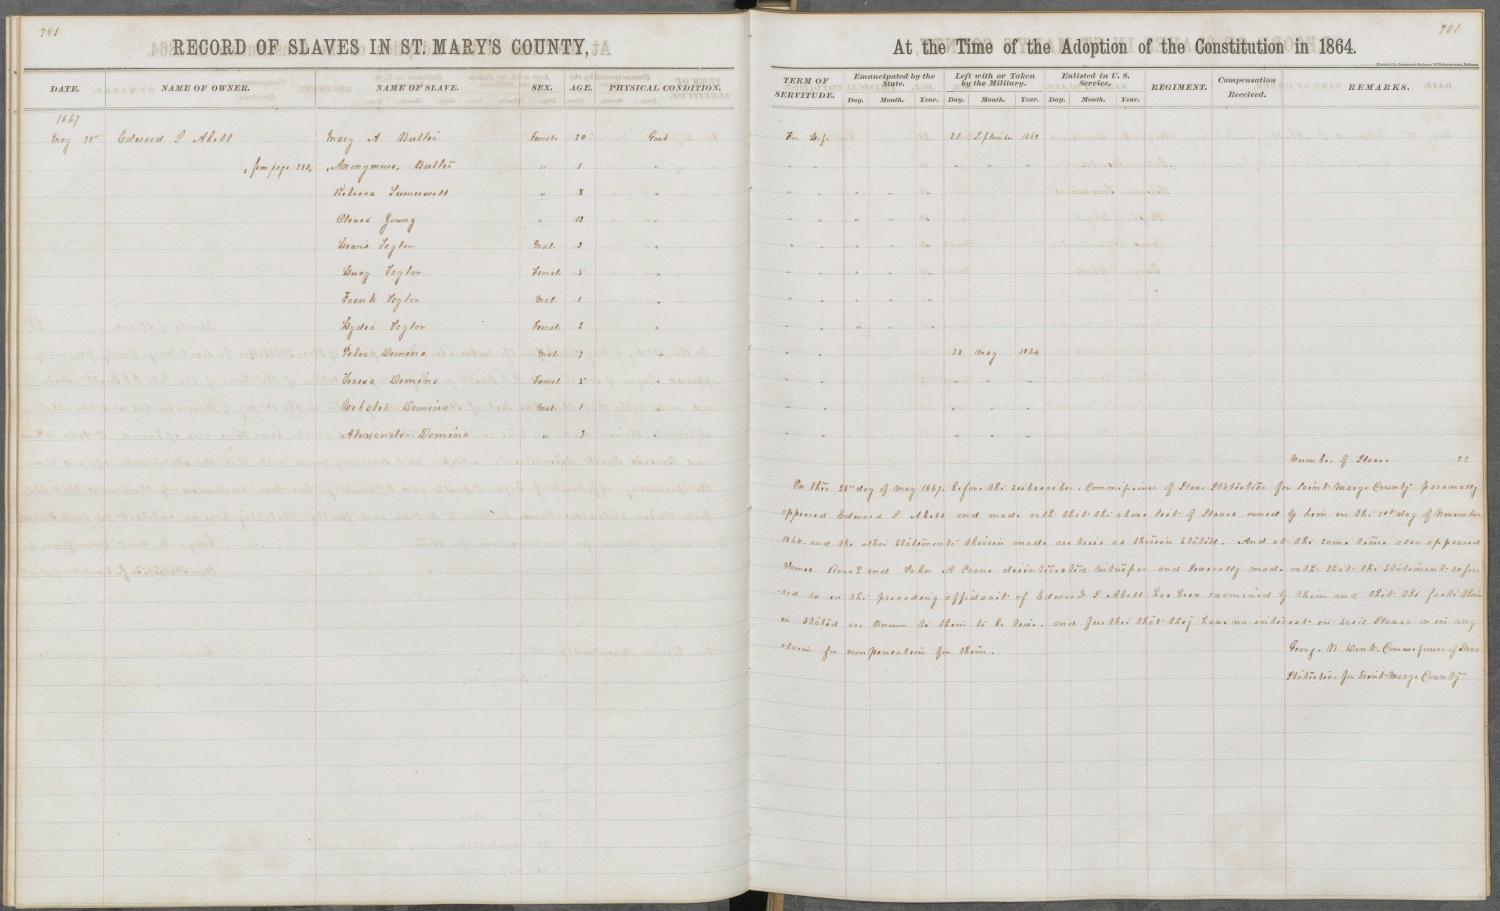 281
RECORD OF SLAVES IN ST. MARY'S COUNTY,
DATE. NAME OF OWNER. NAME OF SLAVE. SEX. AGE. PHYSICAL CONDITION.
1867
May 28" Edward I Abell Mary A Butler Female 20 Good
from page 280, Anonymous, Butler " 1 "
Rebecca " 8 "
Young " 13 "
Lewis Taylor Male 3 "
Lucy Taylor Female 5 "
Frank Taylor Male 1 "
Lydia Taylor Female 3 "
Peter Demine Male 7 "
Teresa Demine Female 5 "
Demine Male 1 "
Alexander Demine " 3 "
281
At the Time of the Adoption of the Constitution in 1864.
TERM OF SERVITUDE. Emancipated by the State. Left with or Taken by the Military. Enlisted in U. S. Service. REGIMENT. Compensation Received. REMARKS.
Day. Month. Year. Day. Month. Year. Day. Month. Year.
For Life 21 September 1862
" " " " "
" " " " "
" " " " "
" " " " "
" " " " "
" " " " "
" " " " "
" " 28 May 1864
" " " " "
" " " " "
" " " " "
Number of Slaves 22
On this 28" day of May 1867. before the subscriber. Commissioner of Slave Statistics for Saint Marys County personally
appeared Edward I Abell and made oath that the above list of Slaves owned by him on the 1st day of November
1864. and the other Statements therein made are true as therein Stated. And at the same time also appeared
James and John A Crane disinterested witnesses and Severally made oath that the Statements refer-
red to in the preceding affidavit of Edward I Abell has been examined by them and that the facts there
in Stated are known to them to be true. and further that they have no interest in said Slaves or in any
claim for compensation for them.
George B Dent. Commissioner of Slave
Statistics for Saint Marys County